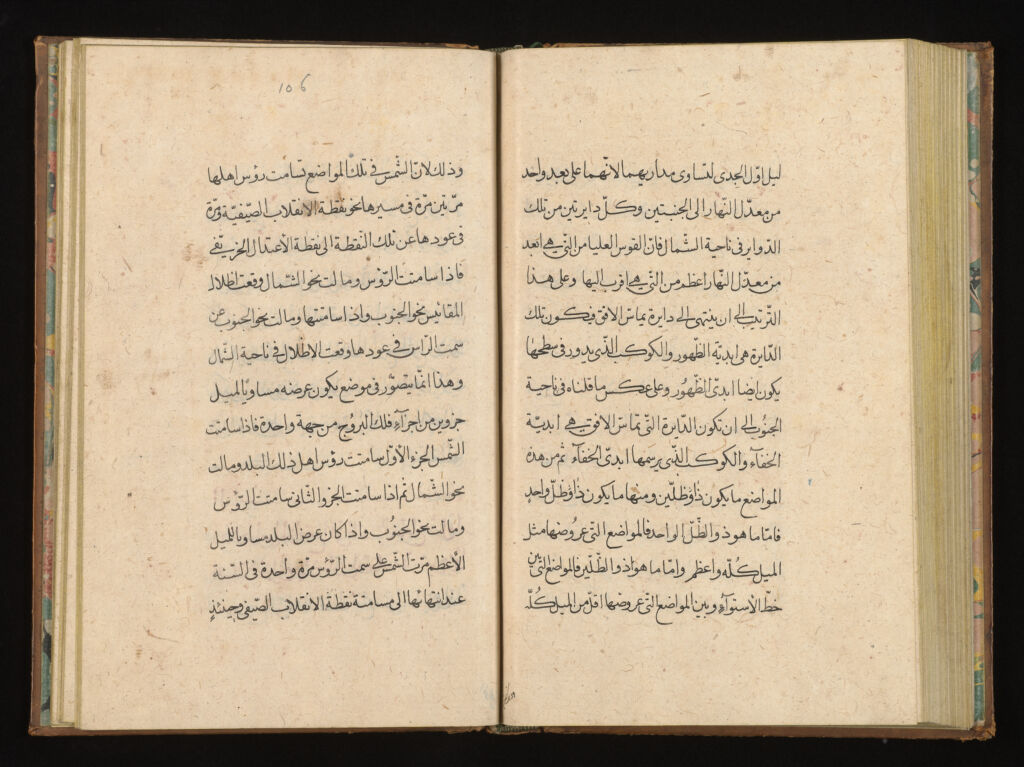 ليل اوّل الجدى لتساوى مداريهما لانّهما على بعد واحد
من معدّل النّهار الى الجنبتين وكلّ دايرتين من تلك
الدّواير فى ناحية الشّمال فانّ القوس العليا من الّتى هى ابعد
من معدّل النّهار اعظم من الّتى هى اقرب اليها وعلى هذا
التّرتيب الى ان ينتهى الى دايرة يماسّ الافق فيكون تلك
الدّايرة هى ابديّة الظّهور والكوكب الّذى يدور فى سطحها
يكون ايضا ابدىّ الظّهُور وعلى عكس ما قلناه فى ناحية
الجنُوب الى ان تكون الدّايرة الّتى تماسّ الافق هى ابديّة
الخفآء والكوكب الّذى يرسمها ابدىّ الخفآء ثم من هذه
المواضع ما يكون ذا ظلّين ومنها ما يكون ذا ظلّ واحدٍ
فامّا ما هو ذو الظّلّ الواحد فالمواضع الّتى عروضها مثل
الميل كلّه واعظم وامّا ما هو ذو الظّلّين فالمواضع الّتى بين
خطّ الأستوآء وبين المواضع الّتى عروضها اقلّ من الميل كُلّه
106
وذلك لانّ الشّمس فى تلك المواضع تسامت رؤس اهلها
مرّتين مرّة فى مسيرها نحو نقطة الانقلاب الصّيفيّة ومرّة
فى عودها عن تلك النّقطة الى نقطة الأعتدال الخريفى
فاذا سامت الرّؤس ومالت نحو الشّمال وقعت اظلال
المقائيس نحو الجنوب واذا سامتتها ومالت نحو الجنوب عن
سمت الرّاس فى عودها وقعت الاظلال فى ناحية الشّمال
وهذا انّما يتصوّر فى موضع يكون عرضه مساويًا لميل
جزوين من اجزآء فلك البروج من جهة واحدة فاذا سامتت
الشّمس الجزء الأوّل سامتت رؤس اهل ذلك البلد ومالت
نحو الشّمال ثم اذا سامتت الجزو الثّانى سامتت الرّؤس
ومالت نحو الجنُوب واذا كان عرض البلد مساويا للميل
الأعظم مرّت الشّمس على سمت الرّؤس مرّة واحدة فى السّنة
عند انتهائها الى مسامتة نقطة الانقلاب الصّيفى وحينئذٍ